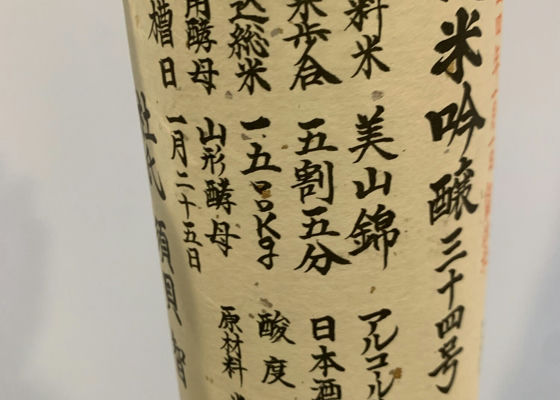 米吟醸三十四号
料米 美山錦 アルコール
米歩合 五割五分 日本酒
込総米 一五〇〇Kg 酸度
用酵母 山形酵母 原材料
槽日 一月二十五日
杜氏